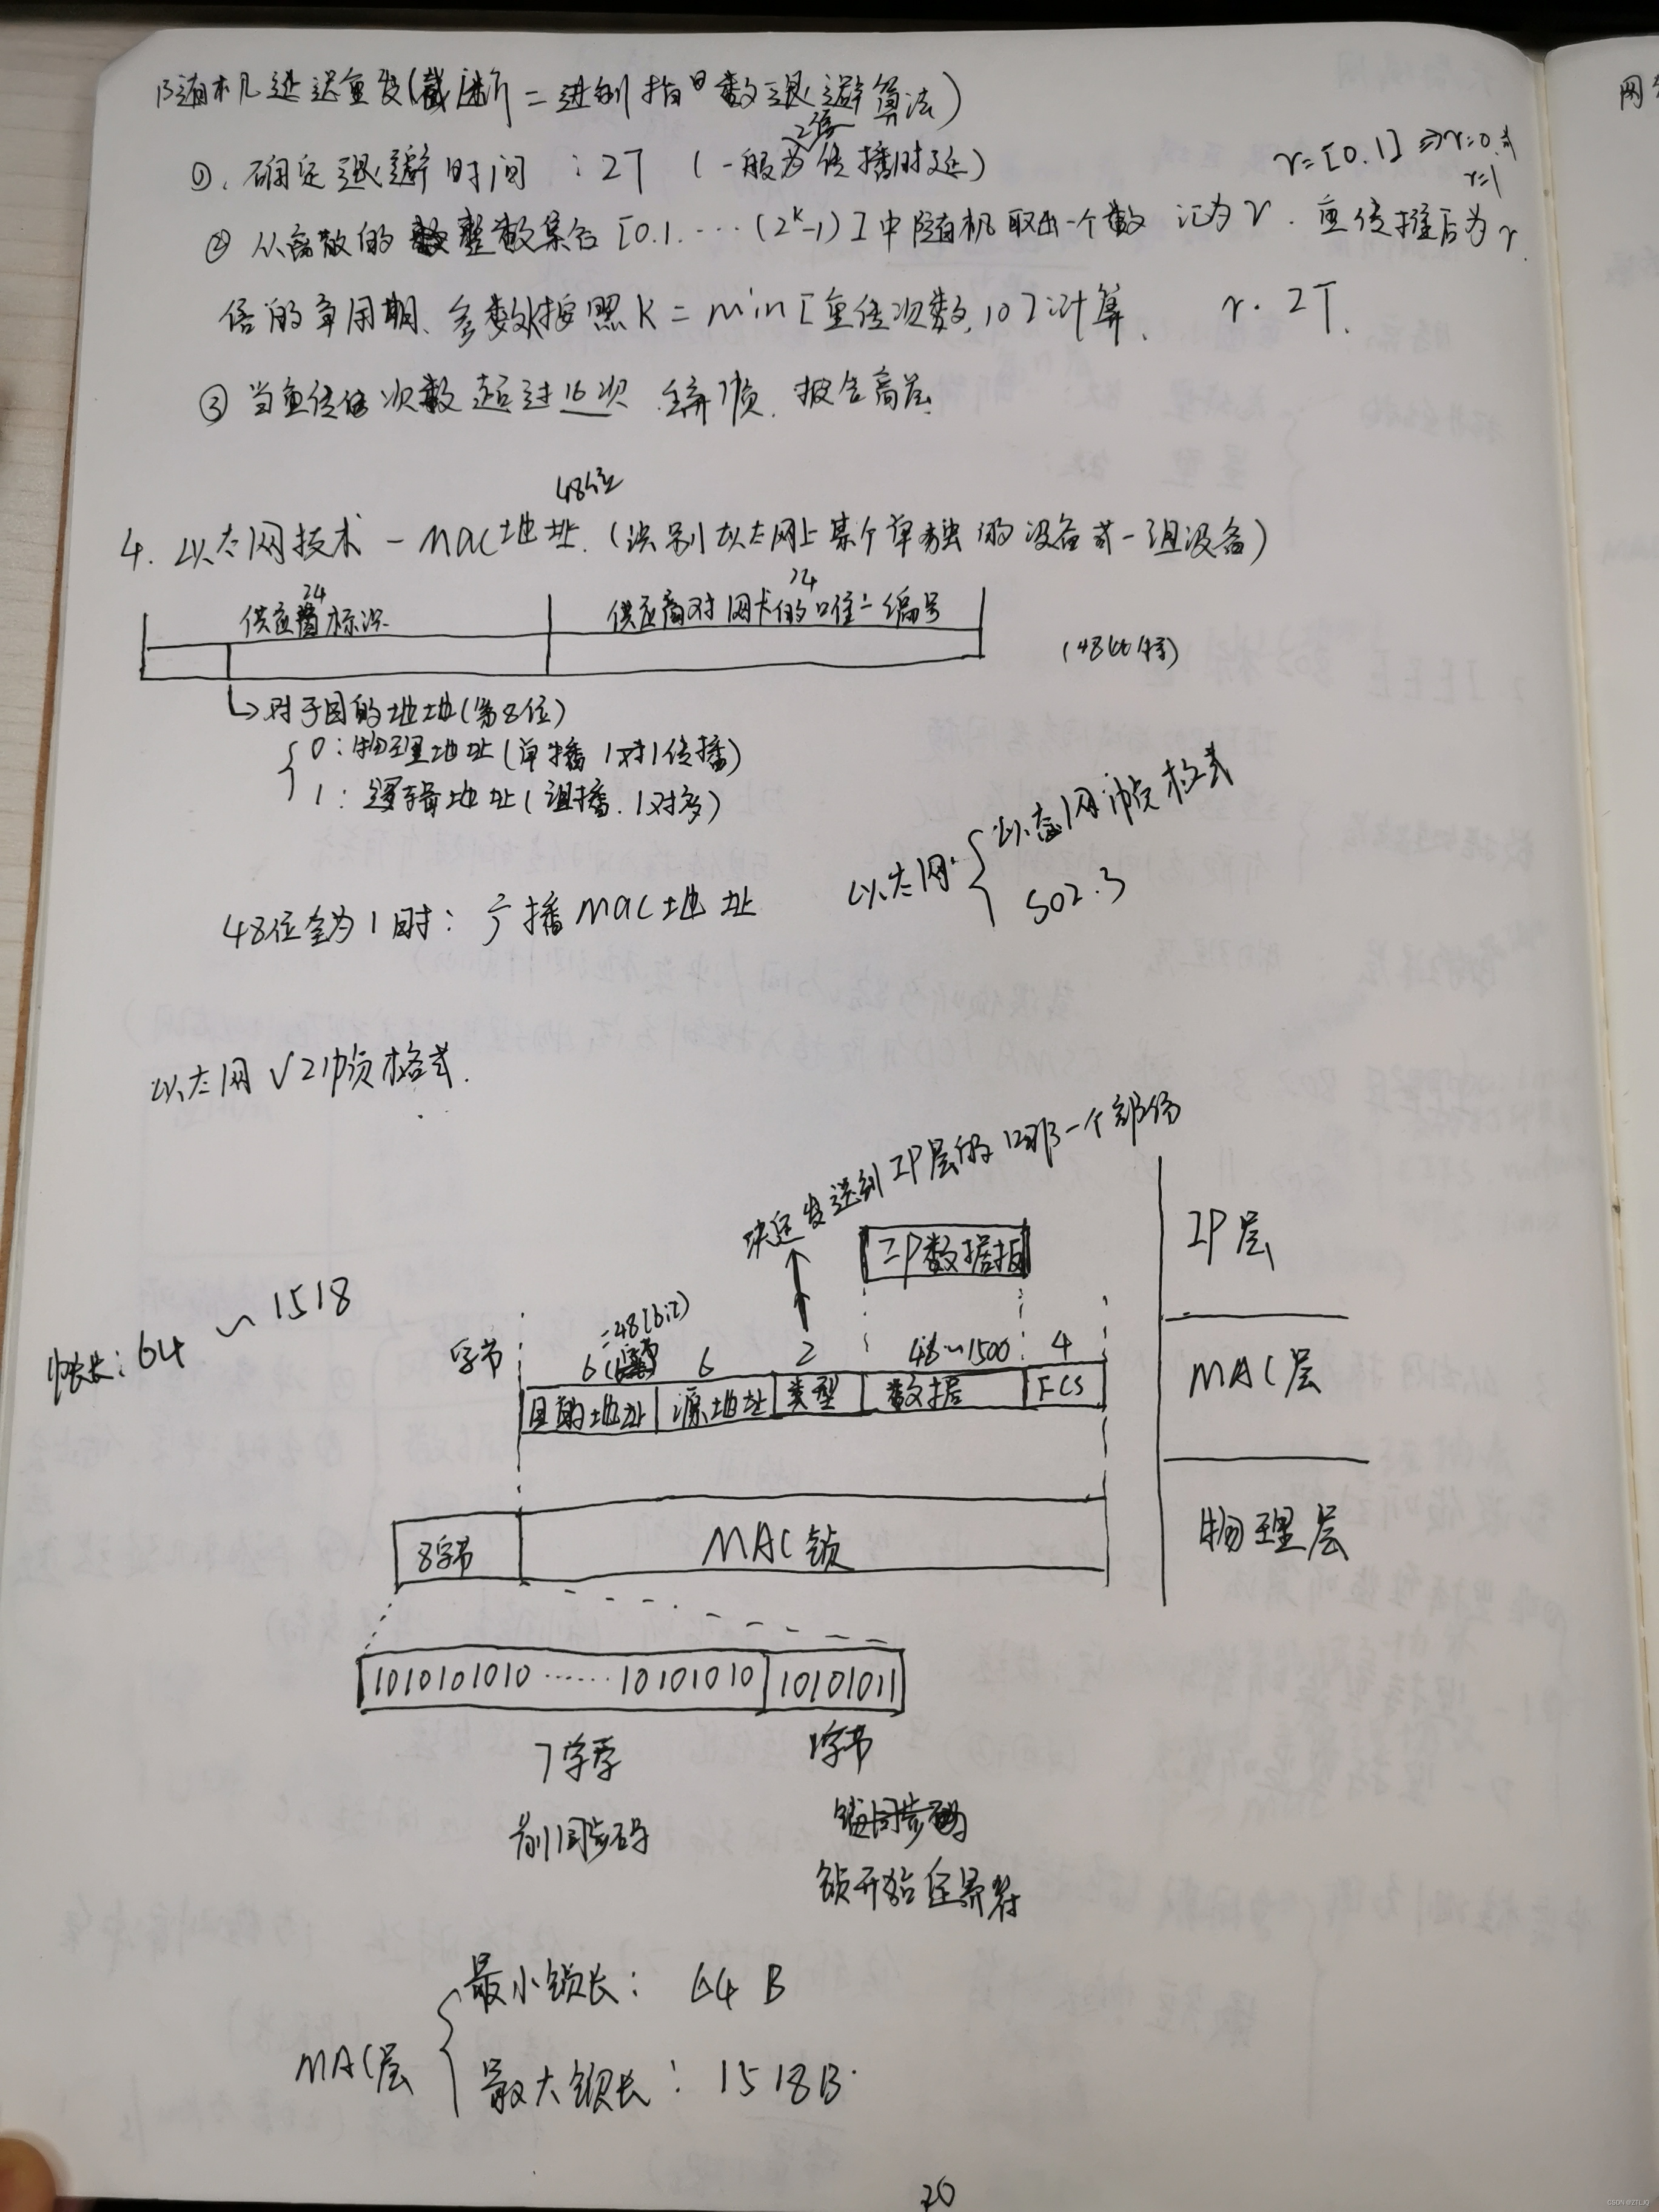 随机延迟重发(截断二进制指数退避算法)
①. 确定退避时间 : 2T (一般为2倍传播时延)
r=[0.1] ⇒ r=0.或
r=1
② 从离散的整数集合[0.1.…(2^k-1)]中随机取出一个数 记为r. 重传推后为r
倍的争用期、参数k按照K=min[重传次数,10]计算. r·2T.
③ 当重传次数超过16次 丢弃帧. 报告高层
48位
4. 以太网技术 - MAC地址.(识别以太网上某个单独的设备或一组设备)
24 24
供应商标识 供应商对网卡的唯一编号
(48比特)
↳对于目的地址(第8位)
0:物理地址(单播 1对1传播)
1:逻辑地址(组播.1对多)
以太网: 以太网帧格式
802.3
48位全为1时: 广播MAC地址
以太网V2帧格式.
决定发送到IP层的哪一个部份
IP数据报 IP层
帧长:64~1518
=48(bit)
字节 6 6 2 46~1500 4
目的地址 源地址 类型 数据 FCS MAC层
8字节 MAC锁 物理层
1010101010……10101010 10101011
7字节 1字节
前同步码
锁开始定界符
MAC层
最小锁长: 64B
最大锁长: 1518B.
20
网
CSDN @ZTLJQ